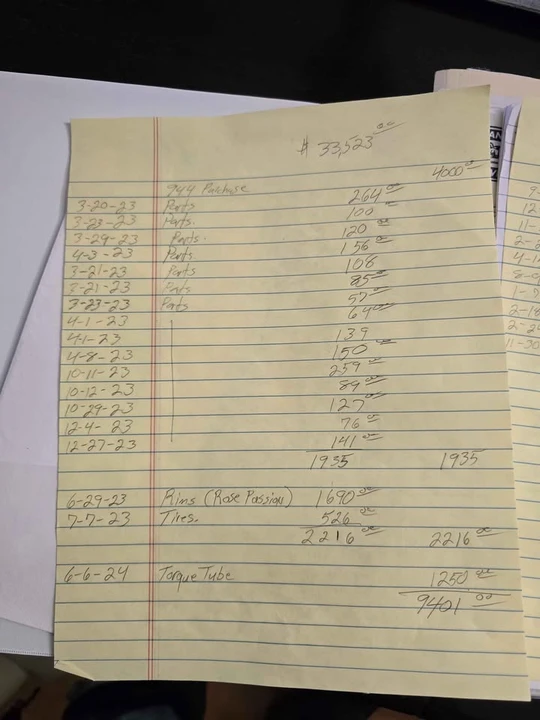 $ 33,523 00
944 Purchase 4000 00
3-20-23 Parts 264 00
3-23-23 Parts. 100
3-29-23 Parts. 120 00
4-3-23 Parts 156 00
3-21-23 Parts 108
3-21-23 Parts 85 00
3-23-23 Parts 57 00
4-1-23 64 00
4-1-23 139
4-8-23 150 00
10-11-23 259 00
10-12-23 89 00
10-29-23 127 00
12-4-23 76 00
12-27-23 141 00
1935 1935
6-29-23 Rims (Rose Passion) 1690 00
7-7-23 Tires. 526 00
2216 00 2216 00
6-6-24 Torque Tube 1250 00
9401 00